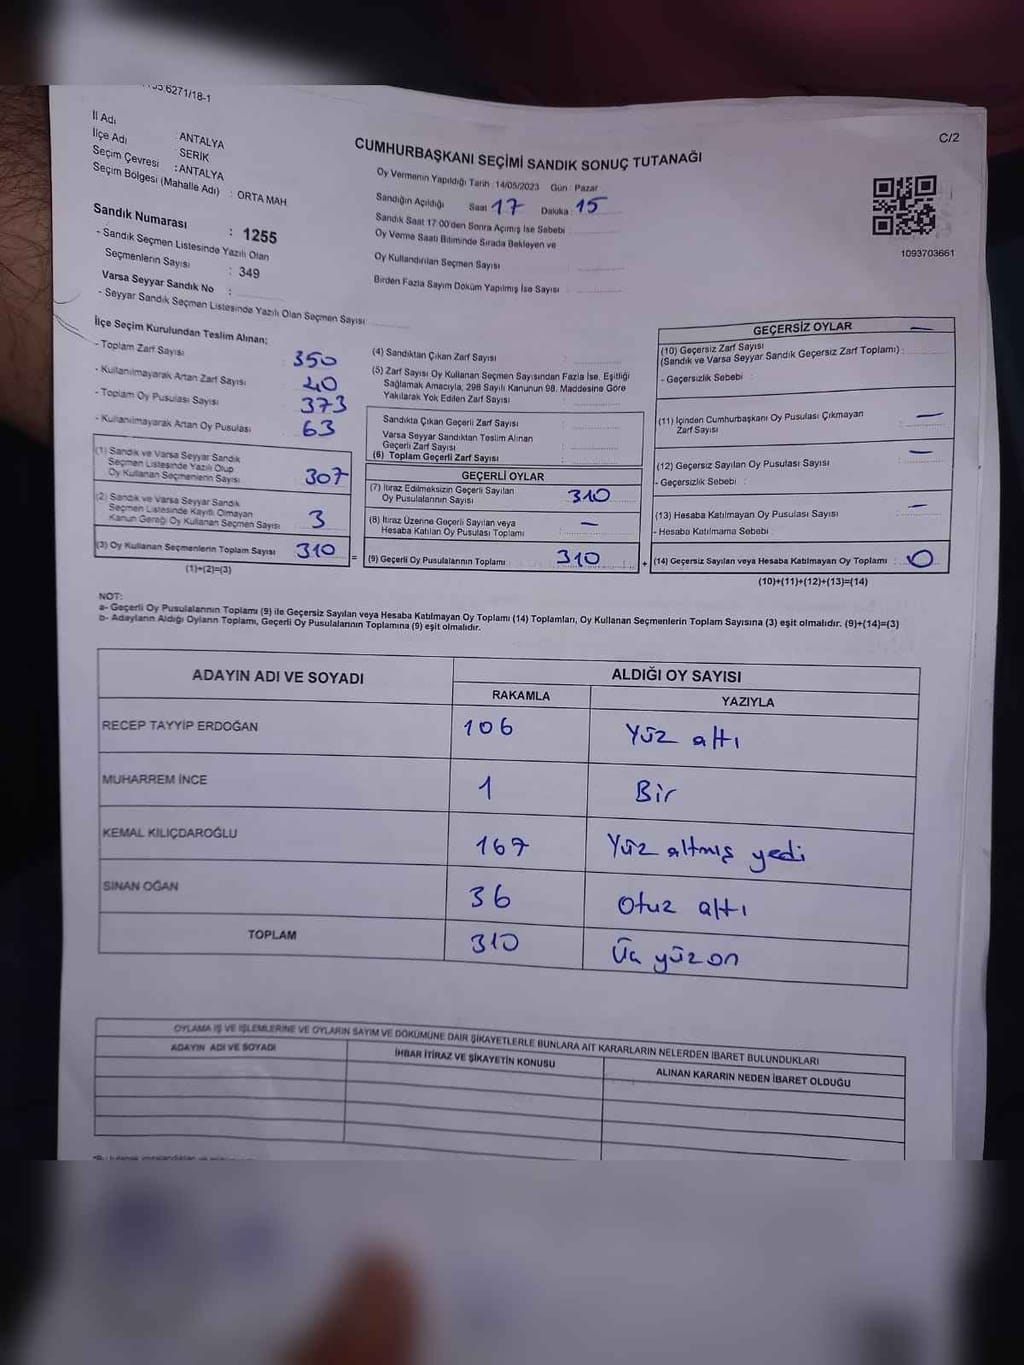 6271/18-1
C/2
İl Adı : ANTALYA
İlçe Adı : SERİK
Seçim Çevresi : ANTALYA
Seçim Bölgesi (Mahalle Adı) : ORTA MAH
Sandık Numarası : 1255
- Sandık Seçmen Listesinde Yazılı Olan
Seçmenlerin Sayısı : 349
Varsa Seyyar Sandık No :
- Seyyar Sandık Seçmen Listesinde Yazılı Olan Seçmen Sayısı
CUMHURBAŞKANI SEÇİMİ SANDIK SONUÇ TUTANAĞI
Oy Vermenin Yapıldığı Tarih : 14/05/2023 Gün : Pazar
Sandığın Açıldığı Saat 17 Dakika : 15
Sandık Saat 17:00'den Sonra Açımış İse Sebebi
Oy Verme Saati Bitiminde Sırada Bekleyen ve
Oy Kullandırılan Seçmen Sayısı
Birden Fazla Sayım Döküm Yapılmış İse Sayısı
1093703661
İlçe Seçim Kurulundan Teslim Alınan;
- Toplam Zarf Sayısı : 350
- Kullanılmayarak Artan Zarf Sayısı 40
- Toplam Oy Pusulası Sayısı 373
- Kullanılmayarak Artan Oy Pusulası 63
(1) Sandık ve Varsa Seyyar Sandık
Seçmen Listesinde Yazılı Olup
Oy Kullanan Seçmenlerin Sayısı 307
(2) Sandık ve Varsa Seyyar Sandık
Seçmen Listesinde Kayıtlı Olmayan
Kanun Gereği Oy Kullanan Seçmen Sayısı 3
(3) Oy Kullanan Seçmenlerin Toplam Sayısı 310 =
(1)+(2)=(3)
(4) Sandıktan Çıkan Zarf Sayısı
(5) Zarf Sayısı Oy Kullanan Seçmen Sayısından Fazla İse, Eşitliği
Sağlamak Amacıyla, 298 Sayılı Kanunun 98. Maddesine Göre
Yakılarak Yok Edilen Zarf Sayısı
Sandıkta Çıkan Geçerli Zarf Sayısı
Varsa Seyyar Sandıktan Teslim Alınan
Geçerli Zarf Sayısı
(6) Toplam Geçerli Zarf Sayısı
GEÇERLİ OYLAR
(7) İtiraz Edilmeksizin Geçerli Sayılan
Oy Pusulalarının Sayısı 310
(8) İtiraz Üzerine Geçerli Sayılan veya
Hesaba Katılan Oy Pusulası Toplamı : —
(9) Geçerli Oy Pusulalarının Toplamı 310 +
GEÇERSİZ OYLAR
(10) Geçersiz Zarf Sayısı —
(Sandık ve Varsa Seyyar Sandık Geçersiz Zarf Toplamı) :
- Geçersizlik Sebebi :
(11) İçinden Cumhurbaşkanı Oy Pusulası Çıkmayan
Zarf Sayısı : —
(12) Geçersiz Sayılan Oy Pusulası Sayısı —
- Geçersizlik Sebebi :
(13) Hesaba Katılmayan Oy Pusulası Sayısı : —
- Hesaba Katılmama Sebebi :
(14) Geçersiz Sayılan veya Hesaba Katılmayan Oy Toplamı : 0
(10)+(11)+(12)+(13)=(14)
NOT:
a- Geçerli Oy Pusulalarının Toplamı (9) ile Geçersiz Sayılan veya Hesaba Katılmayan Oy Toplamı (14) Toplamları, Oy Kullanan Seçmenlerin Toplam Sayısına (3) eşit olmalıdır. (9)+(14)=(3)
b- Adayların Aldığı Oyların Toplamı, Geçerli Oy Pusulalarının Toplamına (9) eşit olmalıdır.
ADAYIN ADI VE SOYADI ALDIĞI OY SAYISI
RAKAMLA YAZIYLA
RECEP TAYYİP ERDOĞAN 106 Yüz altı
MUHARREM İNCE 1 Bir
KEMAL KILIÇDAROĞLU 167 Yüz altmış yedi
SİNAN OĞAN 36 Otuz altı
TOPLAM 310 Üç yüz on
OYLAMA İŞ VE İŞLEMLERİNE VE OYLARIN SAYIM VE DÖKÜMÜNE DAİR ŞİKAYETLERLE BUNLARA AİT KARARLARIN NELERDEN İBARET BULUNDUKLARI
ADAYIN ADI VE SOYADI İHBAR İTİRAZ VE ŞİKAYETİN KONUSU ALINAN KARARIN NEDEN İBARET OLDUĞU